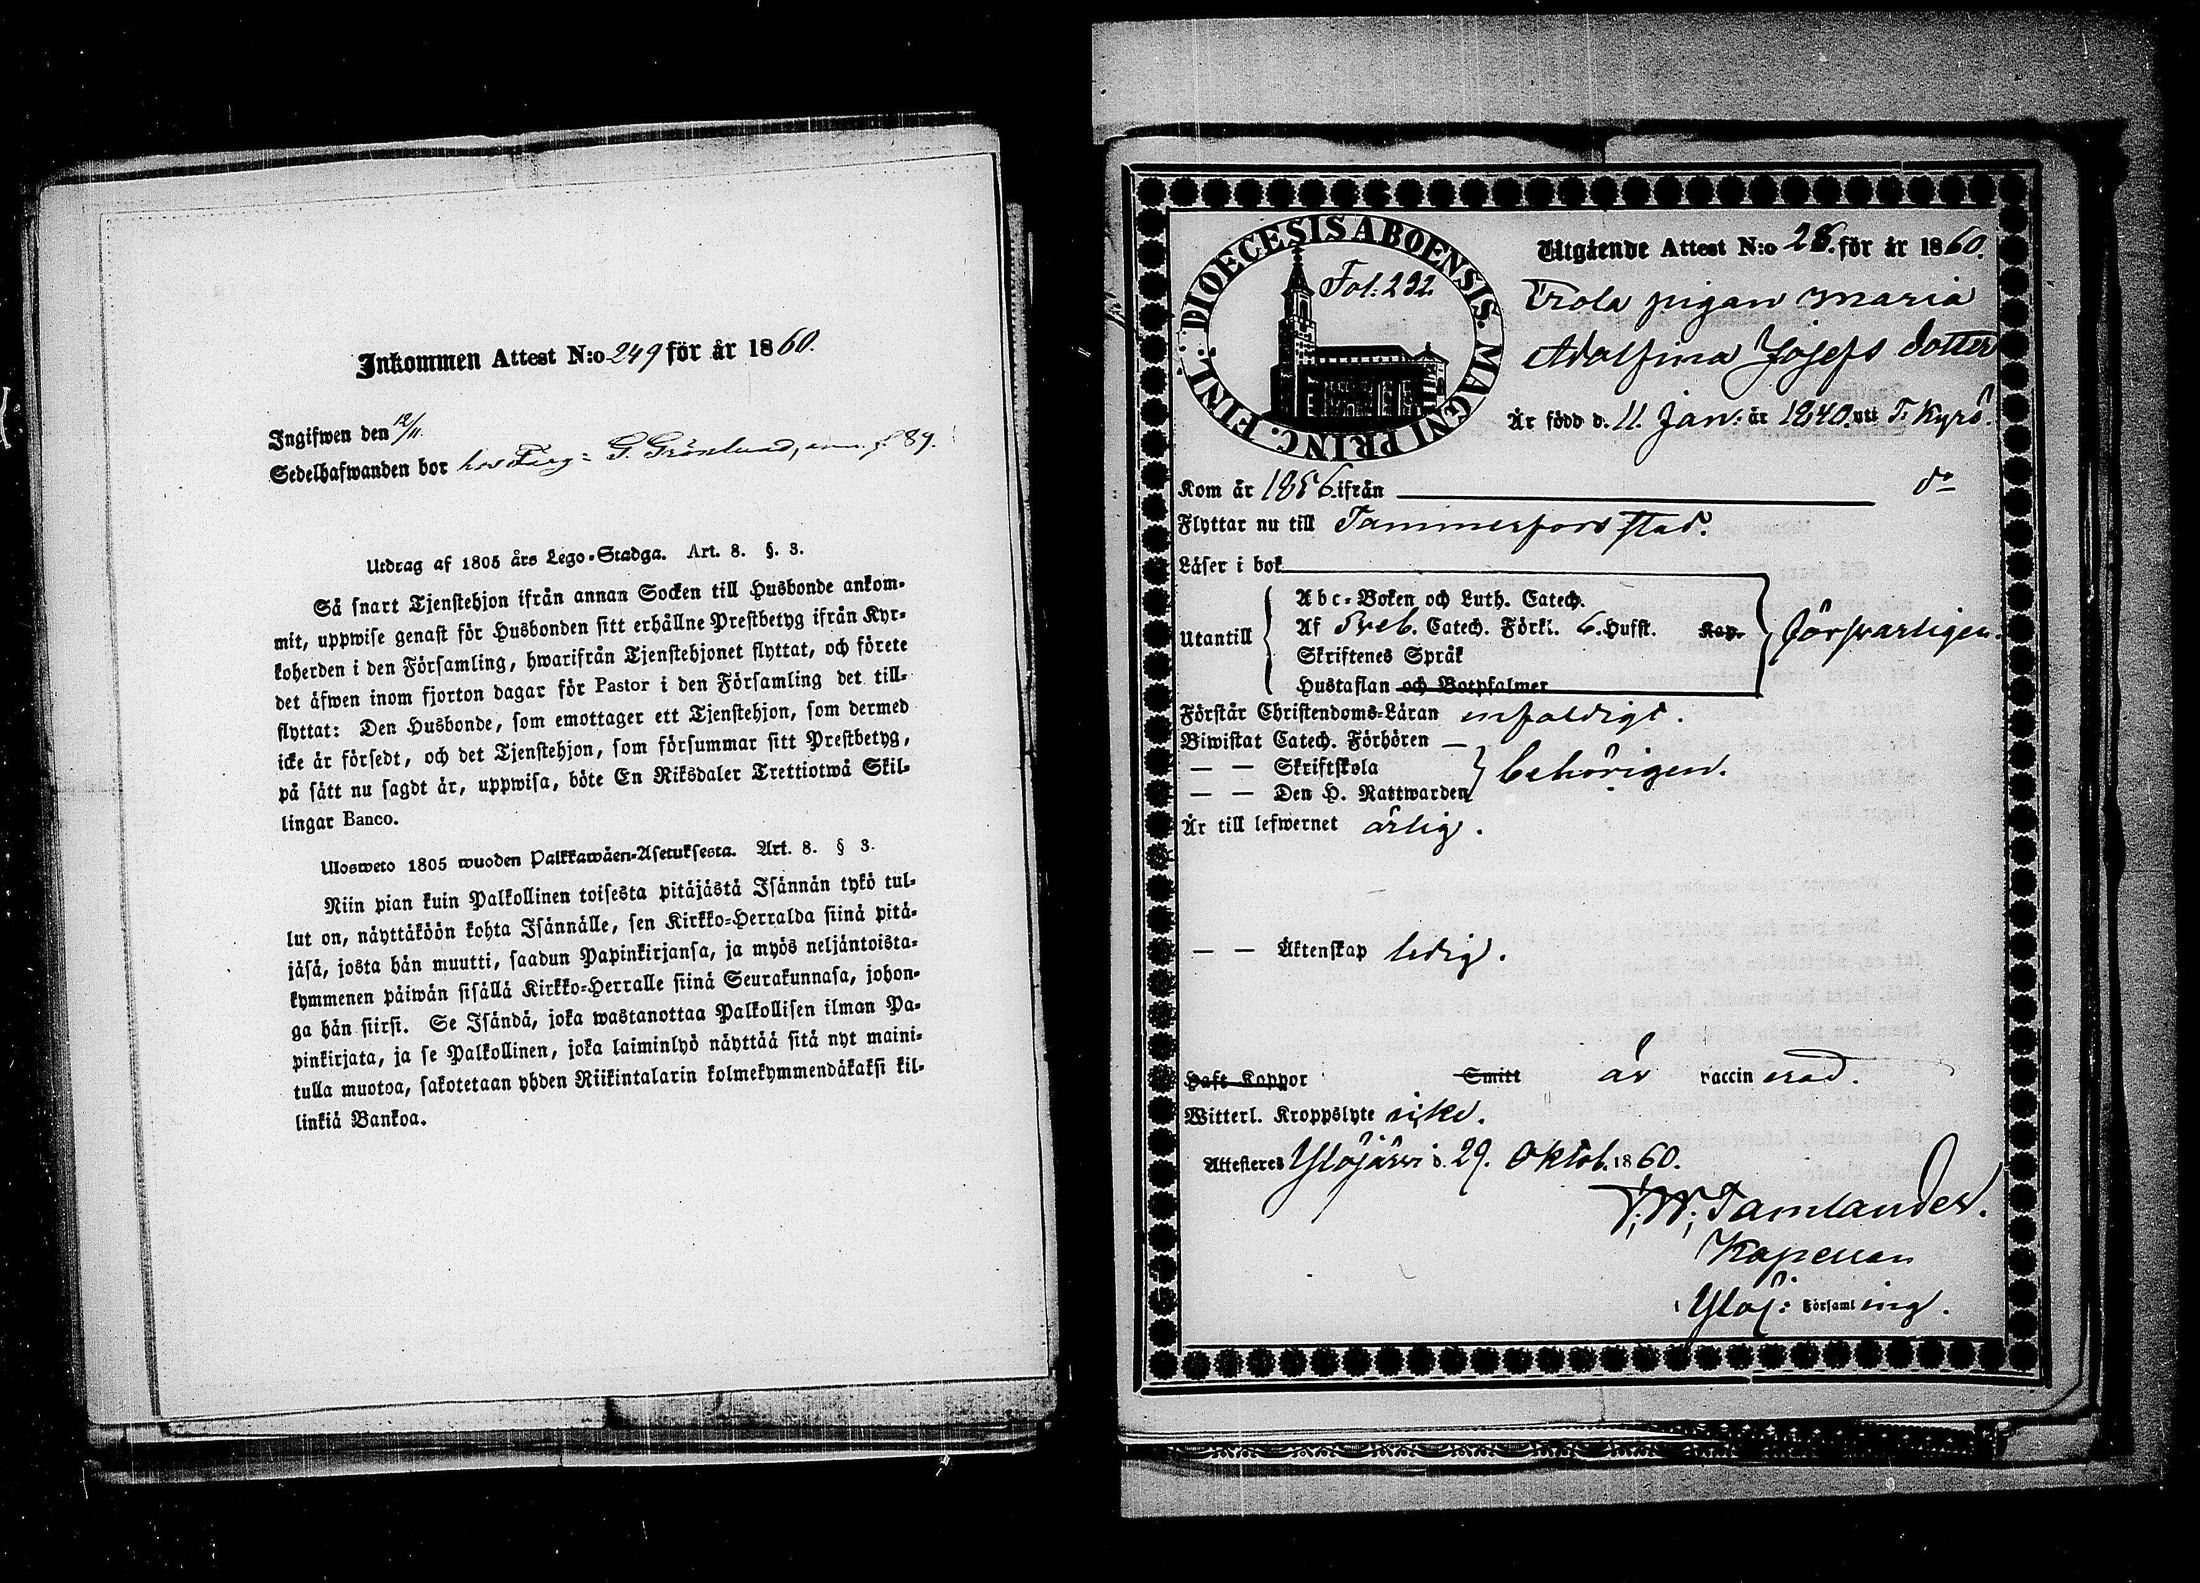 Inkommen Attest N:o 249 för år 1860.
Ingifwen den 12/11.
Sedelhafwanden bor hos Färg: G. Grönlund, f 89.
Utdrag af 1805 års Lego-Stadga. Art. 8. §. 3.
Så snart Tjenstehjon ifrån annan Socken till Husbonde ankom-
mit, uppwise genast för Husbonden sitt erhållne Prestbetyg ifrån Kyr-
koherden i den Församling, hwarifrån Tjenstehjonet flyttat, och förete
det äfwen inom fjorton dagar för Pastor i den Församling det till-
flyttat: Den Husbonde, som emottager ett Tjenstehjon, som dermed
icke är försedt, och det Tjenstehjon, som försummar sitt Prestbetyg,
på sätt nu sagdt är, uppwisa, böte En Riksdaler Trettiotwå Skil-
lingar Banco.
Ulosweto 1805 wuoden Palkkawäen-Asetuksesta. Art. 8. § 3.
Niin pian kuin Palkollinen toisesta pitäjästä Isännän tykö tul-
lut on, näyttäköön kohta Isännälle, sen Kirkko-Herralda siinä pitä-
jäsä, josta hän muutti, saadun Papinkirjansa, ja myös neljäntoista-
kymmenen päiwän sisällä Kirkko-Herralle siinä Seurakunnasa, johon-
ga hän siirsi. Se Isändä, joka wastanottaa Palkollisen ilman Pa-
pinkirjata, ja se Palkollinen, joka laiminlyö näyttää sitä nyt maini-
tulla muotoa, sakotetaan yhden Riikintalarin kolmekymmendäkaksi kil-
linkiä Bankoa.
DIOECESIS ABOENSIS. MAGNI PRINC. FINL.
Fol: 232.
Utgående Attest N:o 28. för år 1860.
Trola pigan Maria
Adolfina Josefs dotter
Är född d. 11. Jan: år 1840. uti T. Kyrö.
Kom år 1856. ifrån do
Flyttar nu till Tammerfors stad.
Läser i bok
Utantill
Abc-Boken och Luth. Catech.
Af Sveb. Catech. Förkl. 6. Hufst. Kap.
Skriftenes Språk
Hustaflan och Botpsalmer
försvarligen.
Förstår Christendoms-Läran enfaldigt.
Biwistat Catech. Förhören —
— — Skriftskola
— — Den H. Nattwarden
behörigen.
Är till lefwernet ärlig.
— — Äktenskap ledig.
Haft Koppor Smitt är vaccinerad.
Witterl. Kroppslyte icke.
Attesteres Ylöjärvi d. 29. Oktob. 1860.
Tamlander.
Kapellan
i Ylöj: Församling.